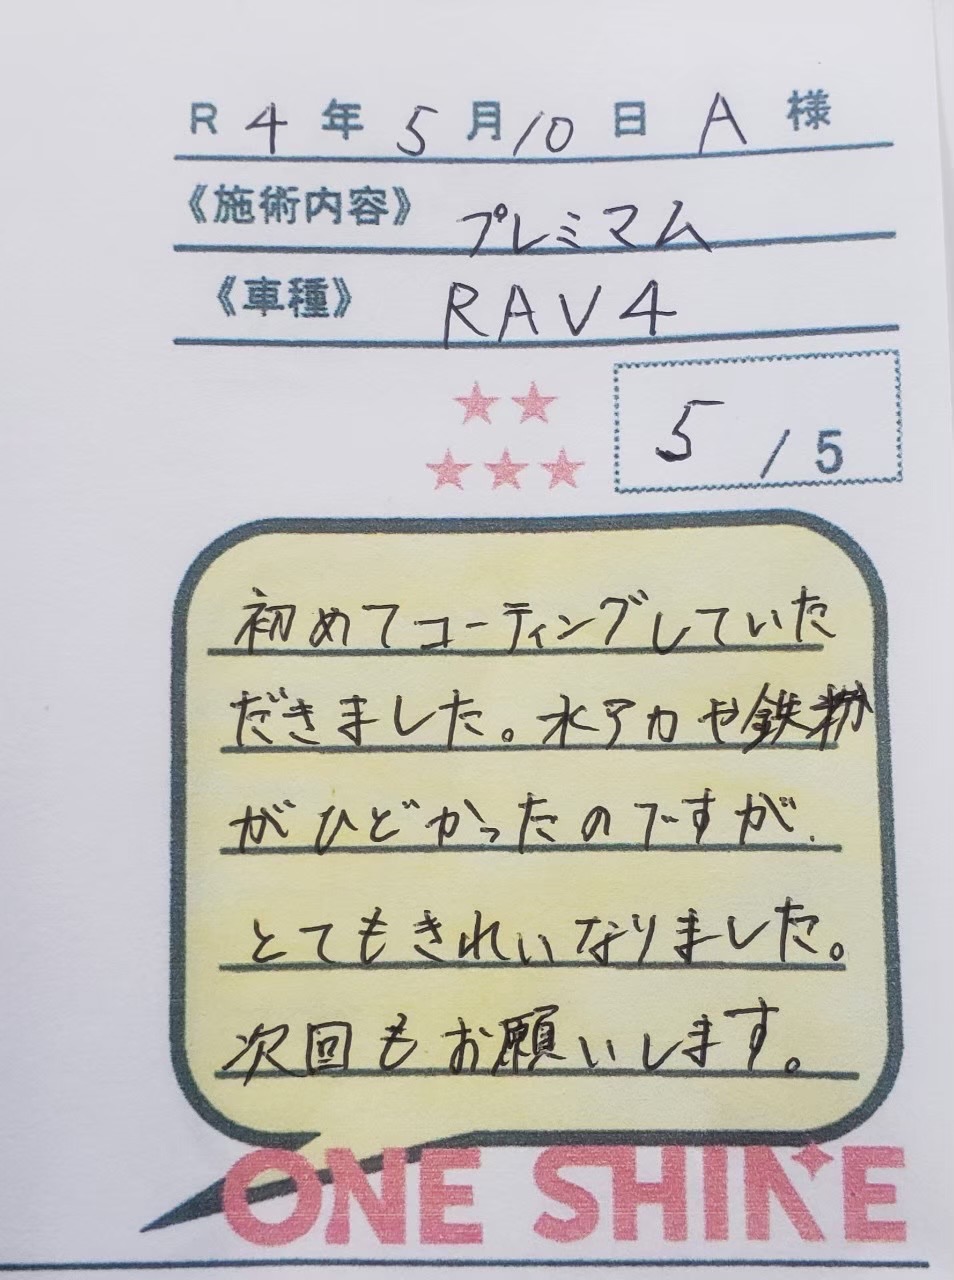 R 4 年 5 月 10 日 A 様
《施術内容》 プレミマム
《車種》 RAV4
5 / 5
初めてコーティングしていた
だきました。水アカや鉄粉
がひどかったのですが、
とてもきれいなりました。
次回もお願いします。
ONE SHINE